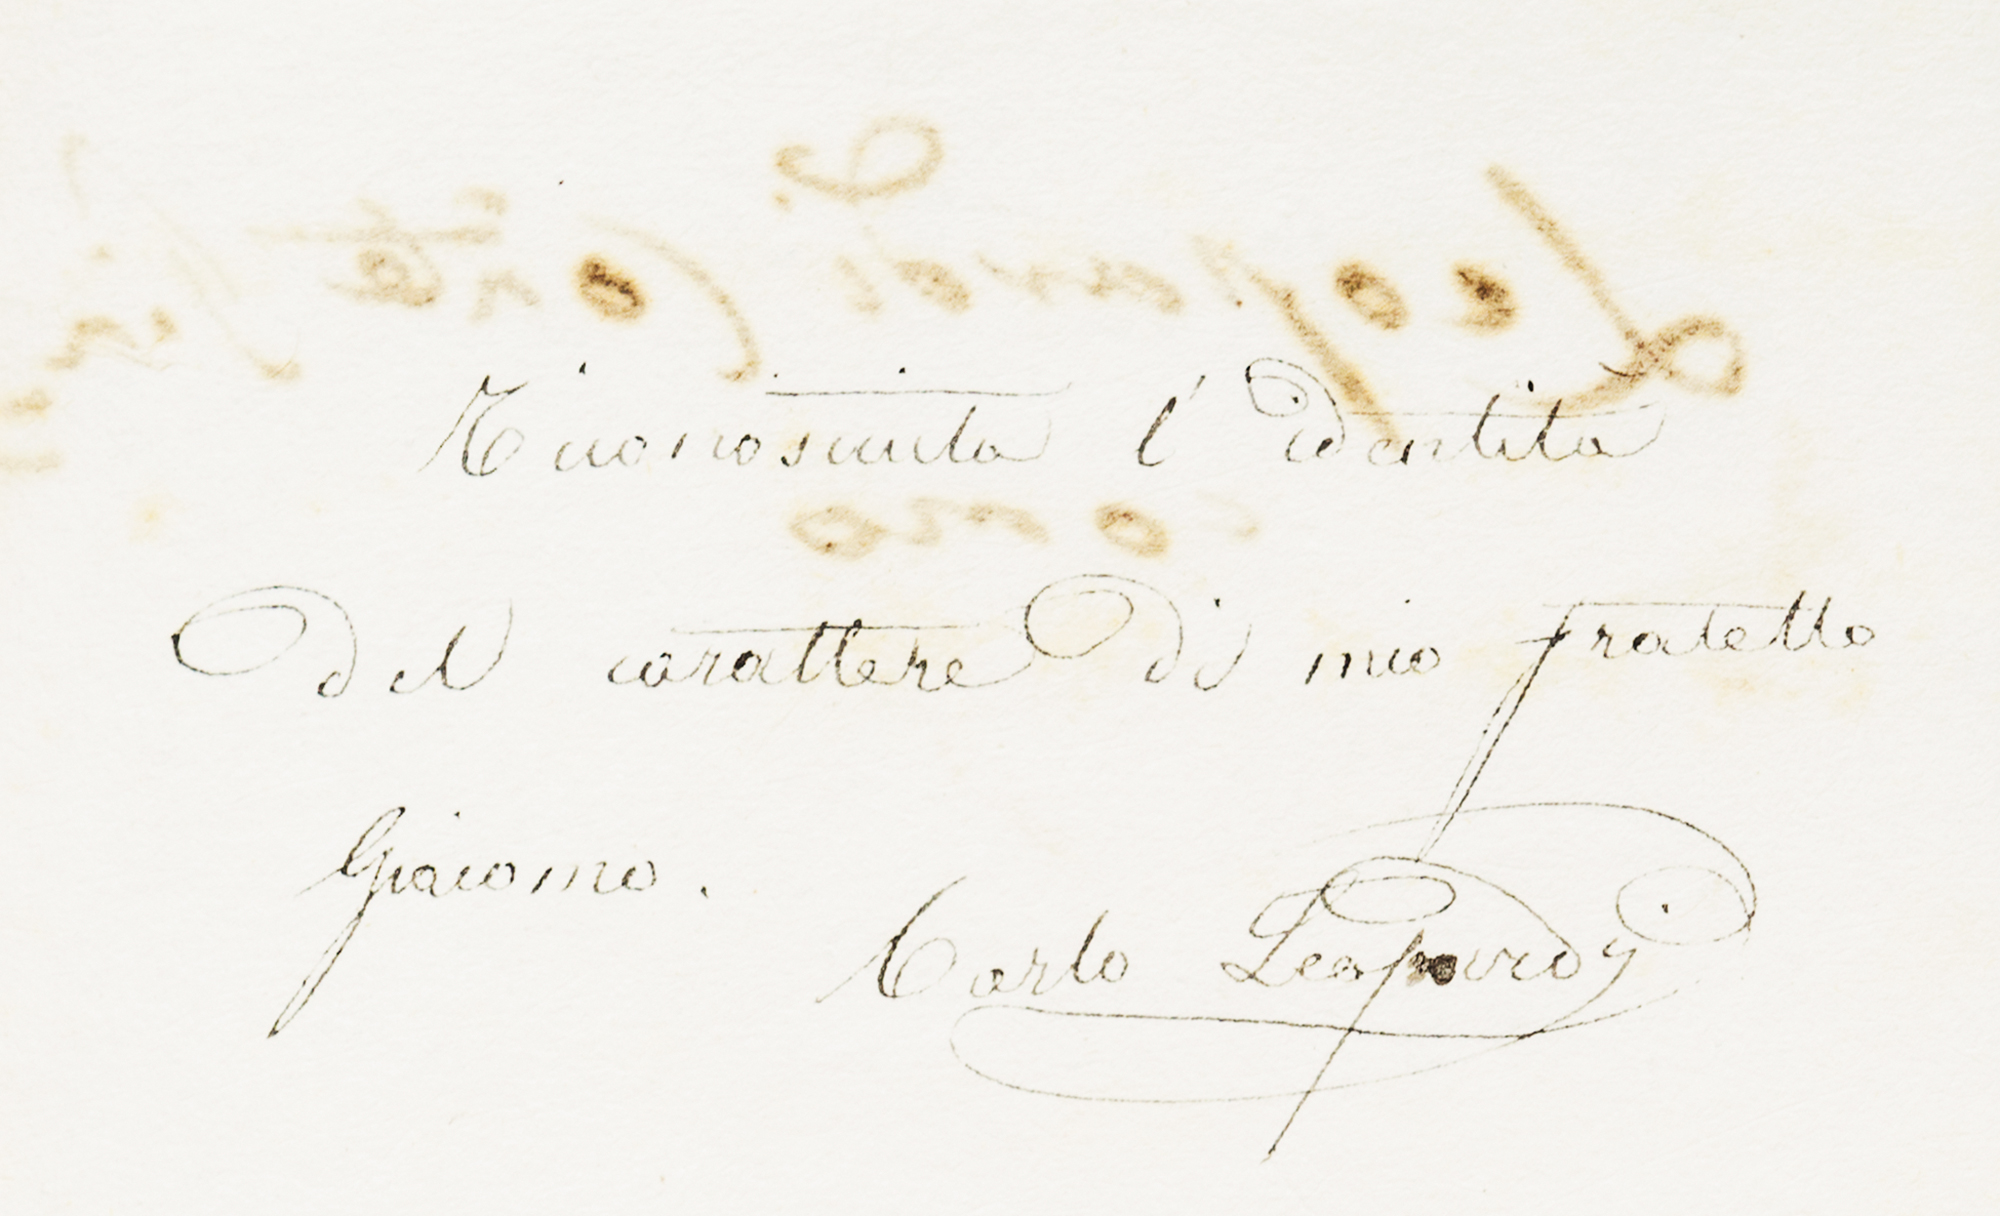 Riconosciuta l'identita
del carattere di mio fratello
Giacomo.
Carlo Leopardi